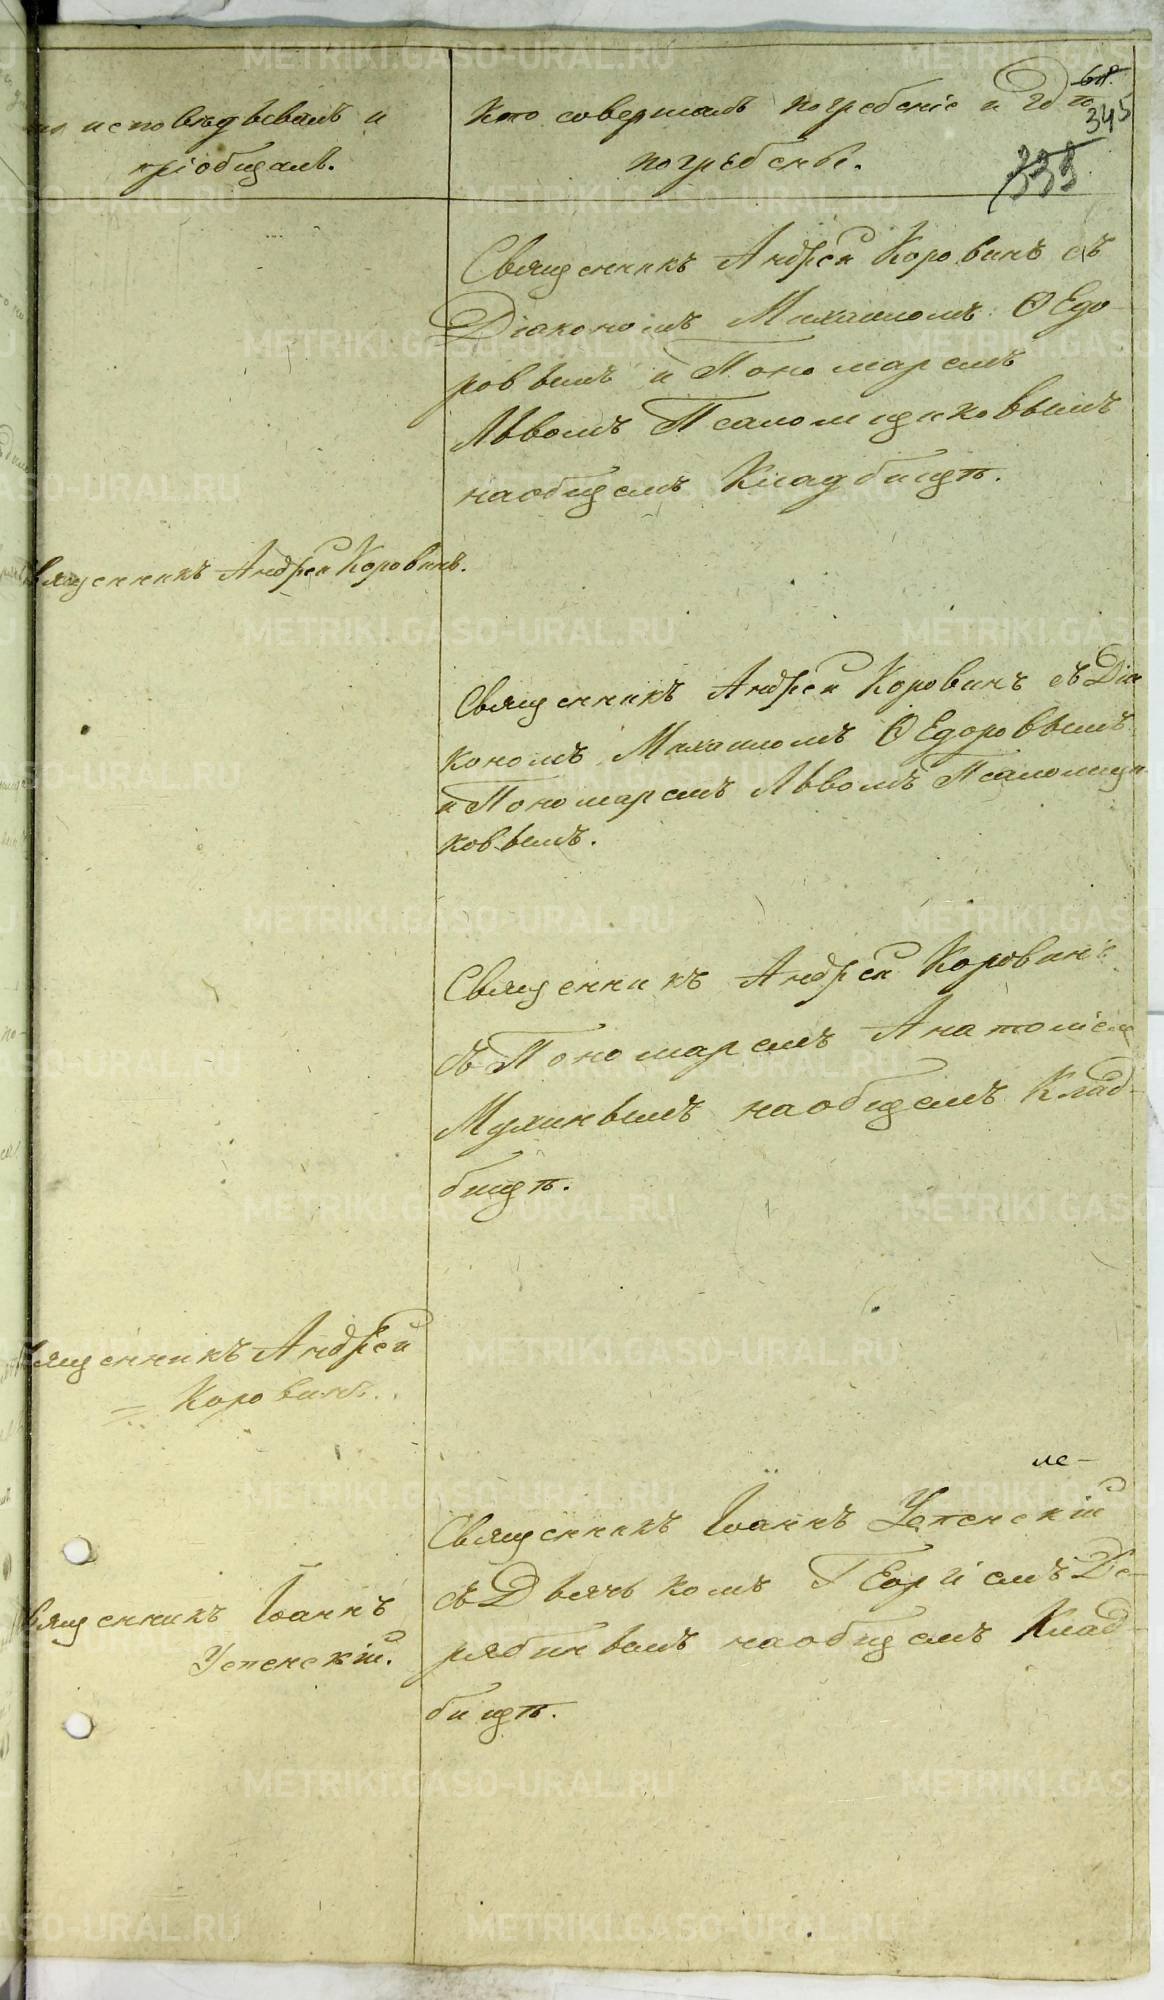 исповѣдывалъ и
пріобщалъ.
Кто совершалъ погребеніе и гдѣ по
погребены.
345
339
Священникъ Андрей Коровинъ съ
Діакономъ Михаиломъ Ѳедо
ровымъ и Пономаремъ
Львомъ Псаломщиковымъ
на общемъ Кладбищѣ.
Священникъ Андрей Коровинъ.
Священникъ Андрей Коровинъ съ Діа
кономъ Михаиломъ Ѳедоровымъ
и Пономаремъ Львомъ Псаломщи
ковымъ.
Священникъ Андрей Коровинъ
съ Пономаремъ Анатоліем
Мухинымъ на общемъ Клад-
бищѣ.
Священникъ Андрей
Коровинъ.
ле-
Священникъ Іоаннъ Успенскій
съ Дьячькомъ Георгіемъ Де-
рябинымъ на общемъ Клад-
бищѣ.
Священникъ Іоаннъ
Успенскій.
METRIKI.GASO-URAL.RU